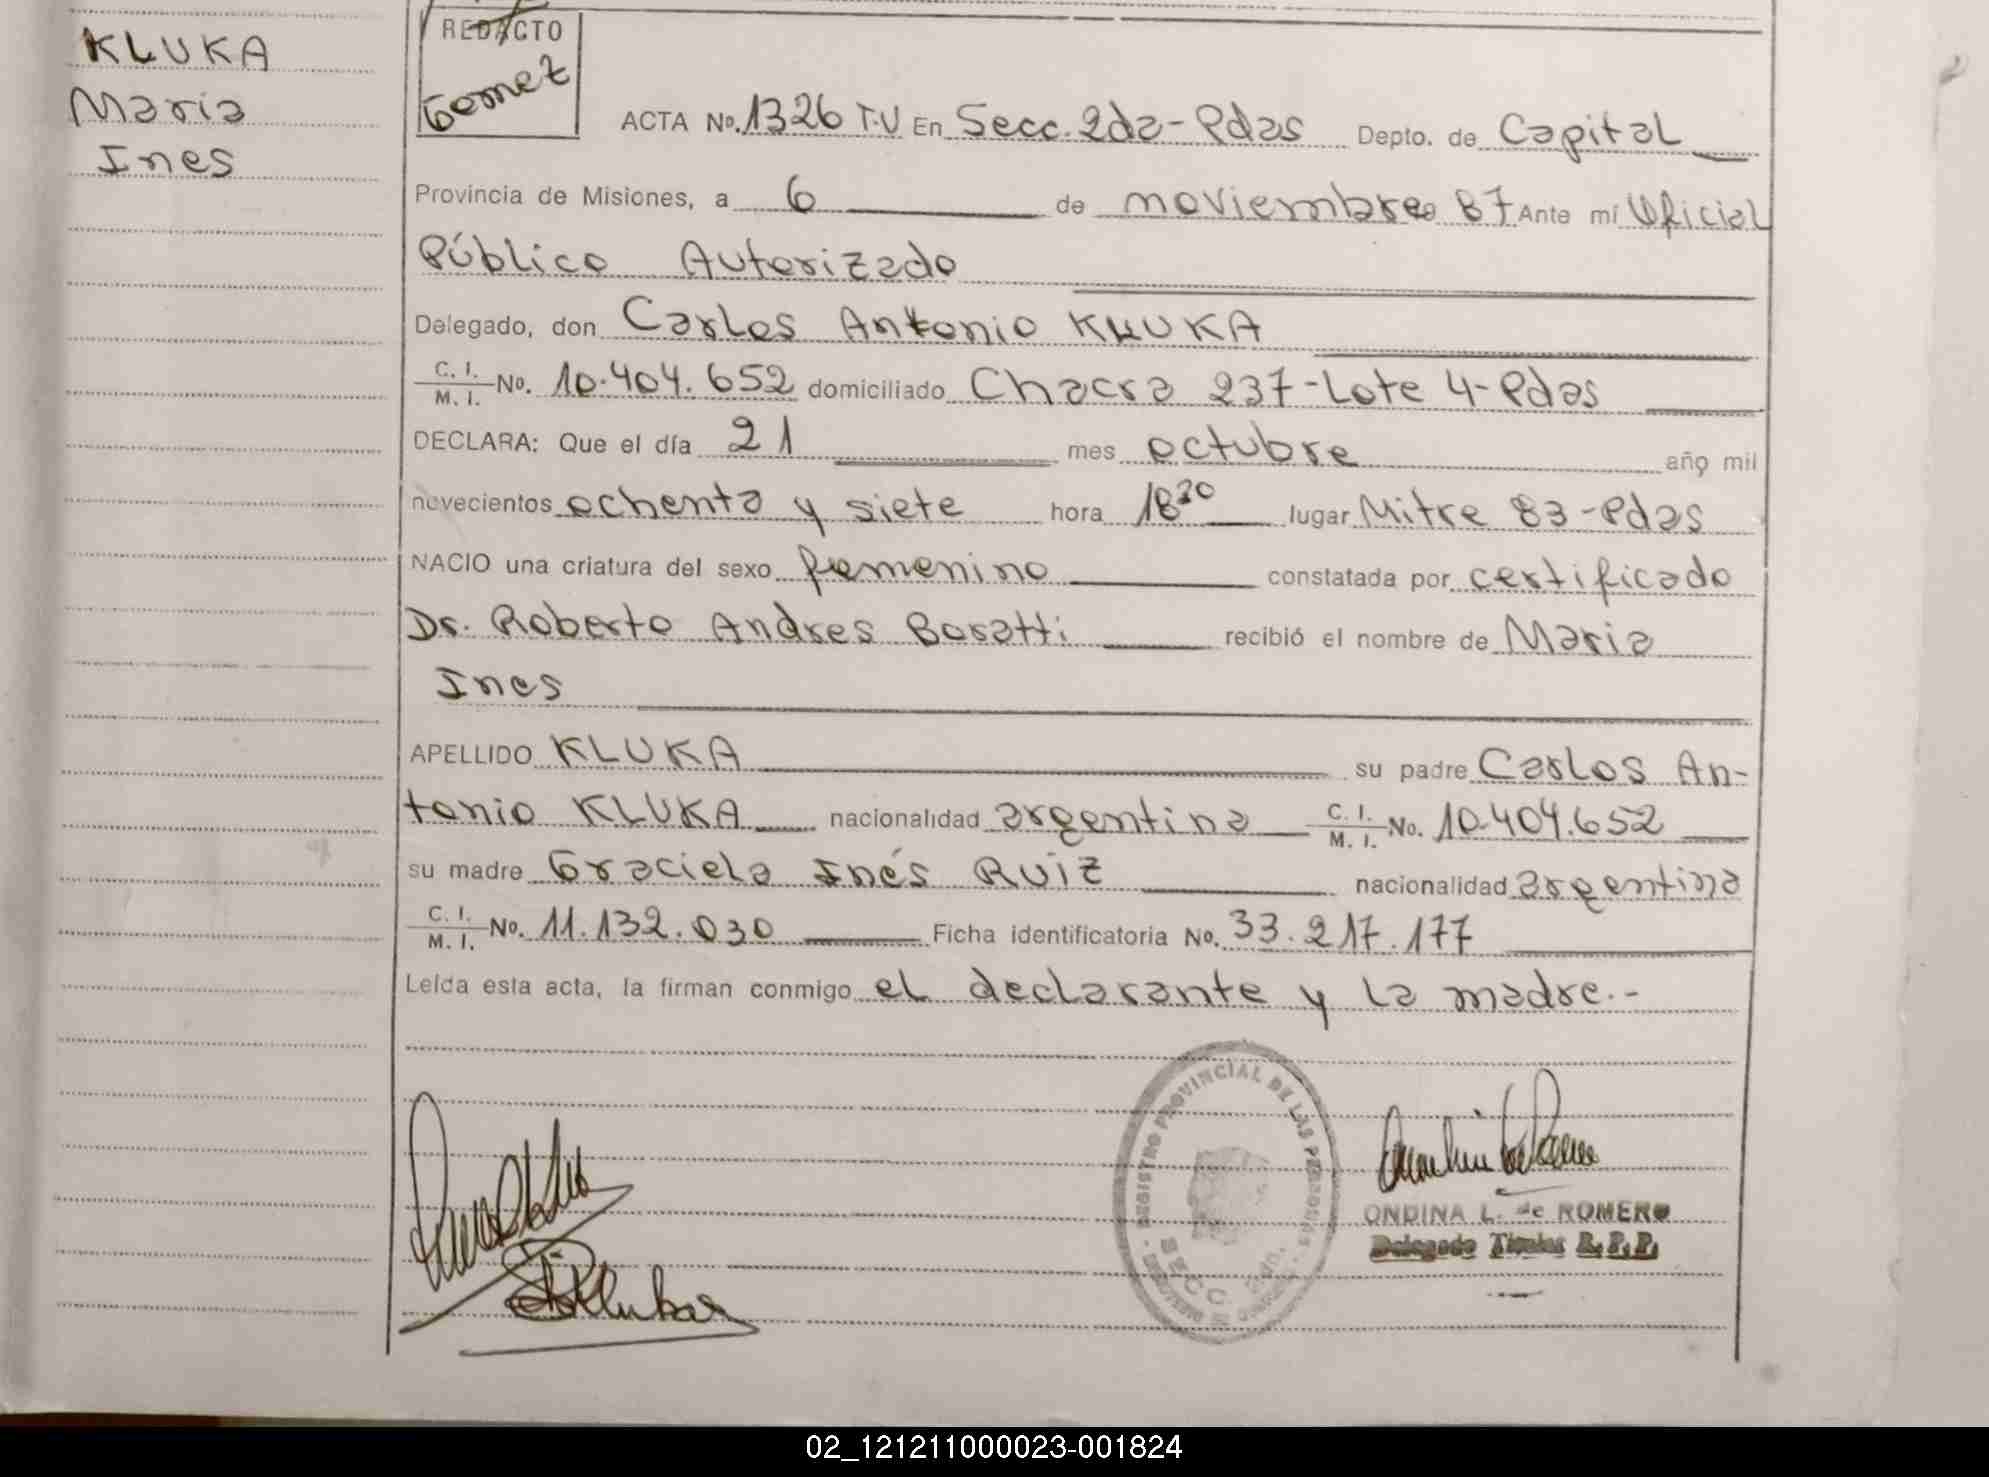 KLUKA
Maria
Ines
REDACTO
Gomez
ACTA No. 1326 T.V En Secc. 2da-Pdas Depto. de Capital
Provincia de Misiones, a 6 de noviembre 87 Ante mí Oficial
Público Autorizado
Delegado, don Carlos Antonio KLUKA
C. I. M. I. No. 10.404.652 domiciliado Chacra 237-Lote 4-Pdas
DECLARA: Que el día 21 mes octubre año mil
novecientos ochenta y siete hora 18 30 lugar Mitre 83-Pdas
NACIO una criatura del sexo femenino constatada por certificado
Dr. Roberto Andres Boratti recibió el nombre de Maria
Ines
APELLIDO KLUKA su padre Carlos An-
tonio KLUKA nacionalidad argentina C. I. M. I. No. 10.404.652
su madre Graciela Inés Ruiz nacionalidad argentina
C. I. M. I. No. 11.132.030 Ficha identificatoria No. 33.217.177
Leída esta acta, la firman conmigo el declarante y la madre.-
REGISTRO PROVINCIAL DE LAS PERSONAS
SECC. 2da.
ONDINA L. de ROMERO
Delegada Titular R.P.P.
02_121211000023-001824